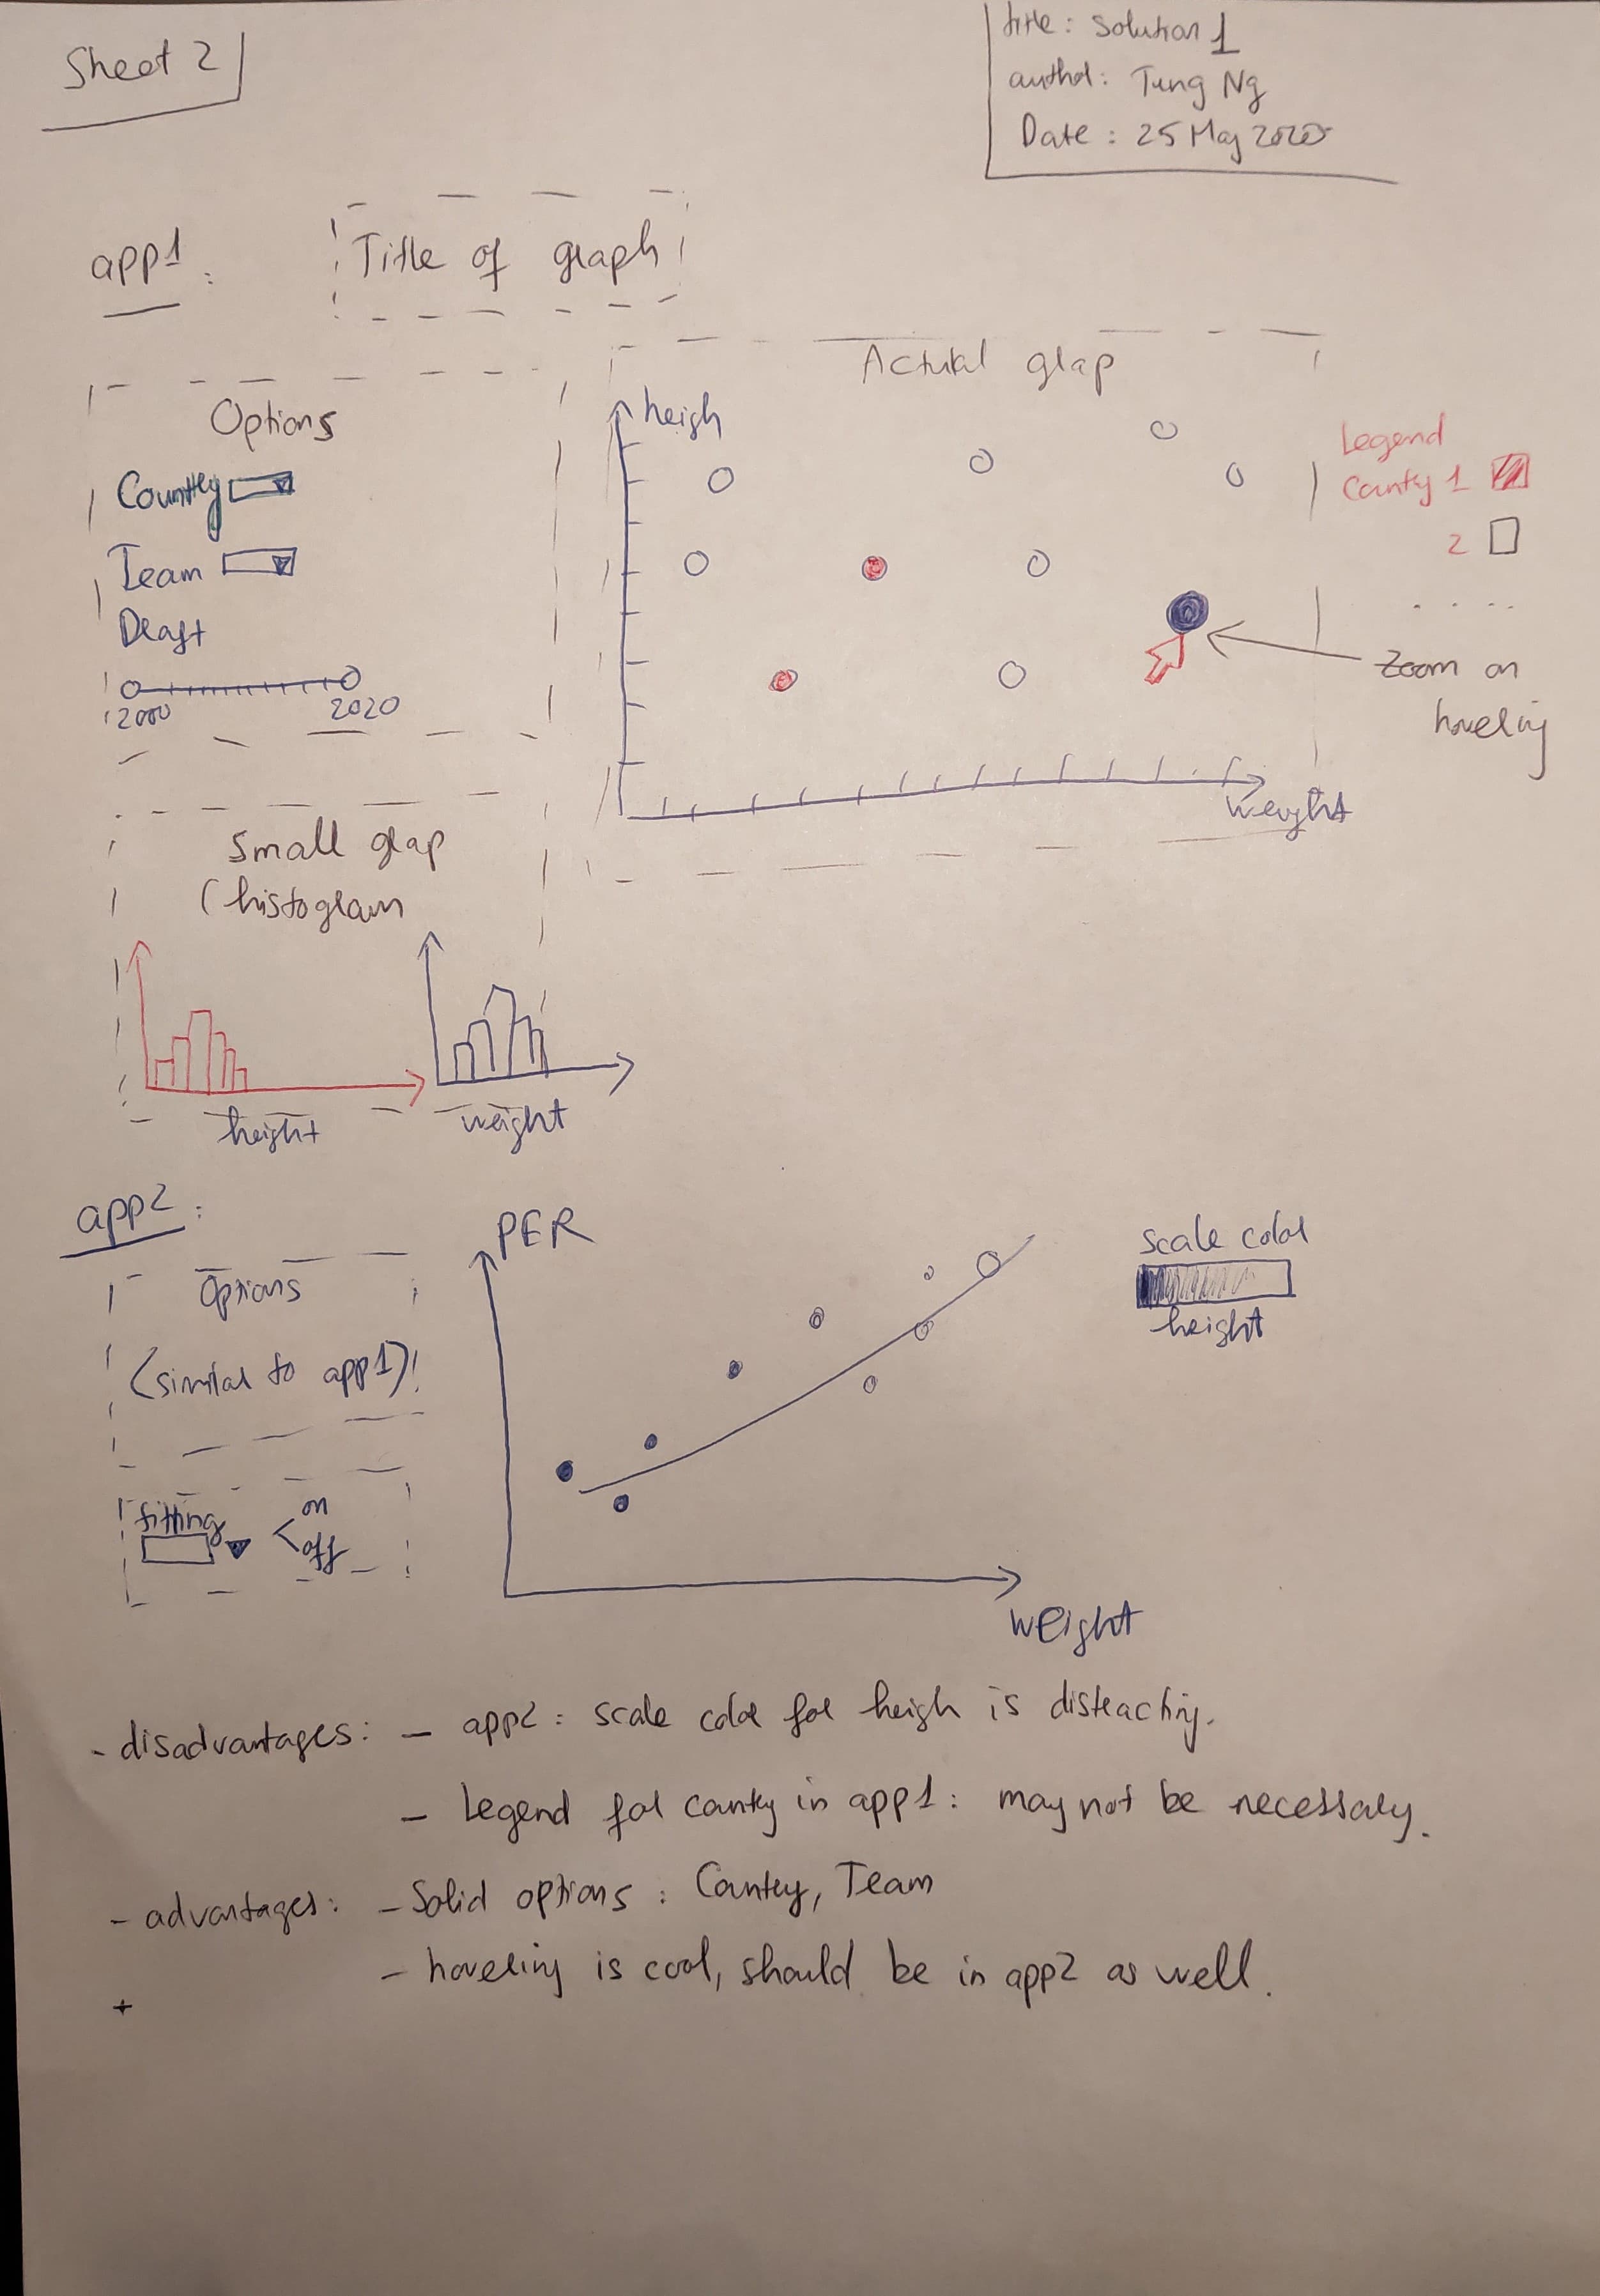 Sheet 2
title : Solution 1
author : Tung Ng
Date : 25 May 2020
app1 :
Title of graph
Options
Country
Team
Draft
2000 2020
Actual grap
heigh
weight
Legend
Country 1
2
. . . .
Zoom on
hovering
Small grap
(histogram
height
weight
app2 :
Options
(similar to app1)
fitting
on
off
PER
weight
scale color
height
- disadvantages : - app2 : scale color for heigh is distracting.
- Legend for country in app1 : may not be necessary.
- advantages : - Solid options : Country, Team
- hovering is cool, should be in app2 as well.
+